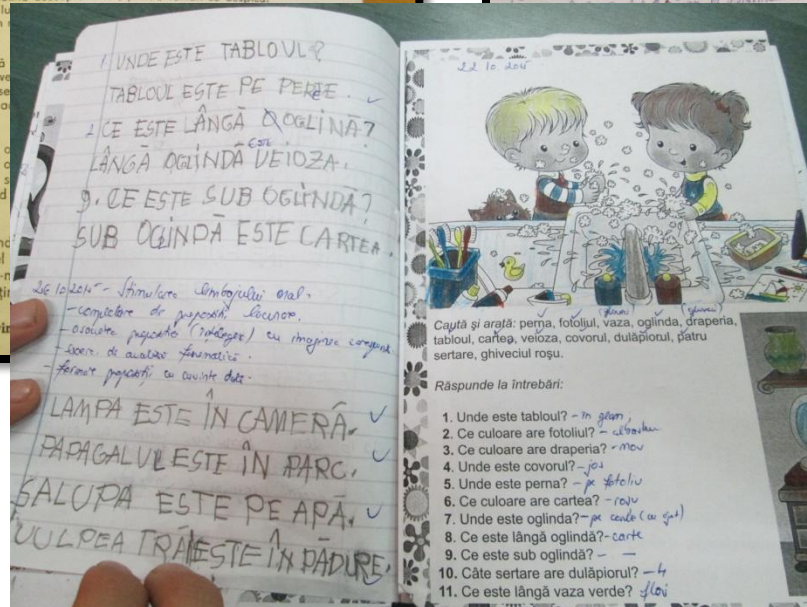 1. UNDE ESTE TABLOUL?
TABLOUL ESTE PE PERETE.
2. CE ESTE LÂNGĂ OGLINĂ?
LÂNGĂ OGLINDĂ ESTE VEIOZA.
9. CE ESTE SUB OGLINDĂ?
SUB OGLINDĂ ESTE CARTEA.
26.10.2015 - Stimularea limbajului oral.
- completare de propoziții lacunare.
- asociere propoziție (înțelegere) cu imaginea coresp.
- exerc. de analiză fonematică.
- formare propoziții cu cuvinte date.
LAMPA ESTE ÎN CAMERĂ.
PAPAGALUL ESTE ÎN PARC.
SALUPA ESTE PE APĂ.
VULPEA TRĂIEȘTE ÎN PĂDURE.
22.10.2015
Caută și arată: perna, fotoliul, vaza, oglinda, draperia,
tabloul, cartea, veioza, covorul, dulăpiorul, patru
sertare, ghiveciul roșu.
Răspunde la întrebări:
1. Unde este tabloul? - în geam,
2. Ce culoare are fotoliul? -
3. Ce culoare are draperia? - mov
4. Unde este covorul? - jos
5. Unde este perna? - pe fotoliu
6. Ce culoare are cartea? - roșu
7. Unde este oglinda? - pe
8. Ce este lângă oglindă? - carte
9. Ce este sub oglindă? - -
10. Câte sertare are dulăpiorul? - 4
11. Ce este lângă vaza verde? flori